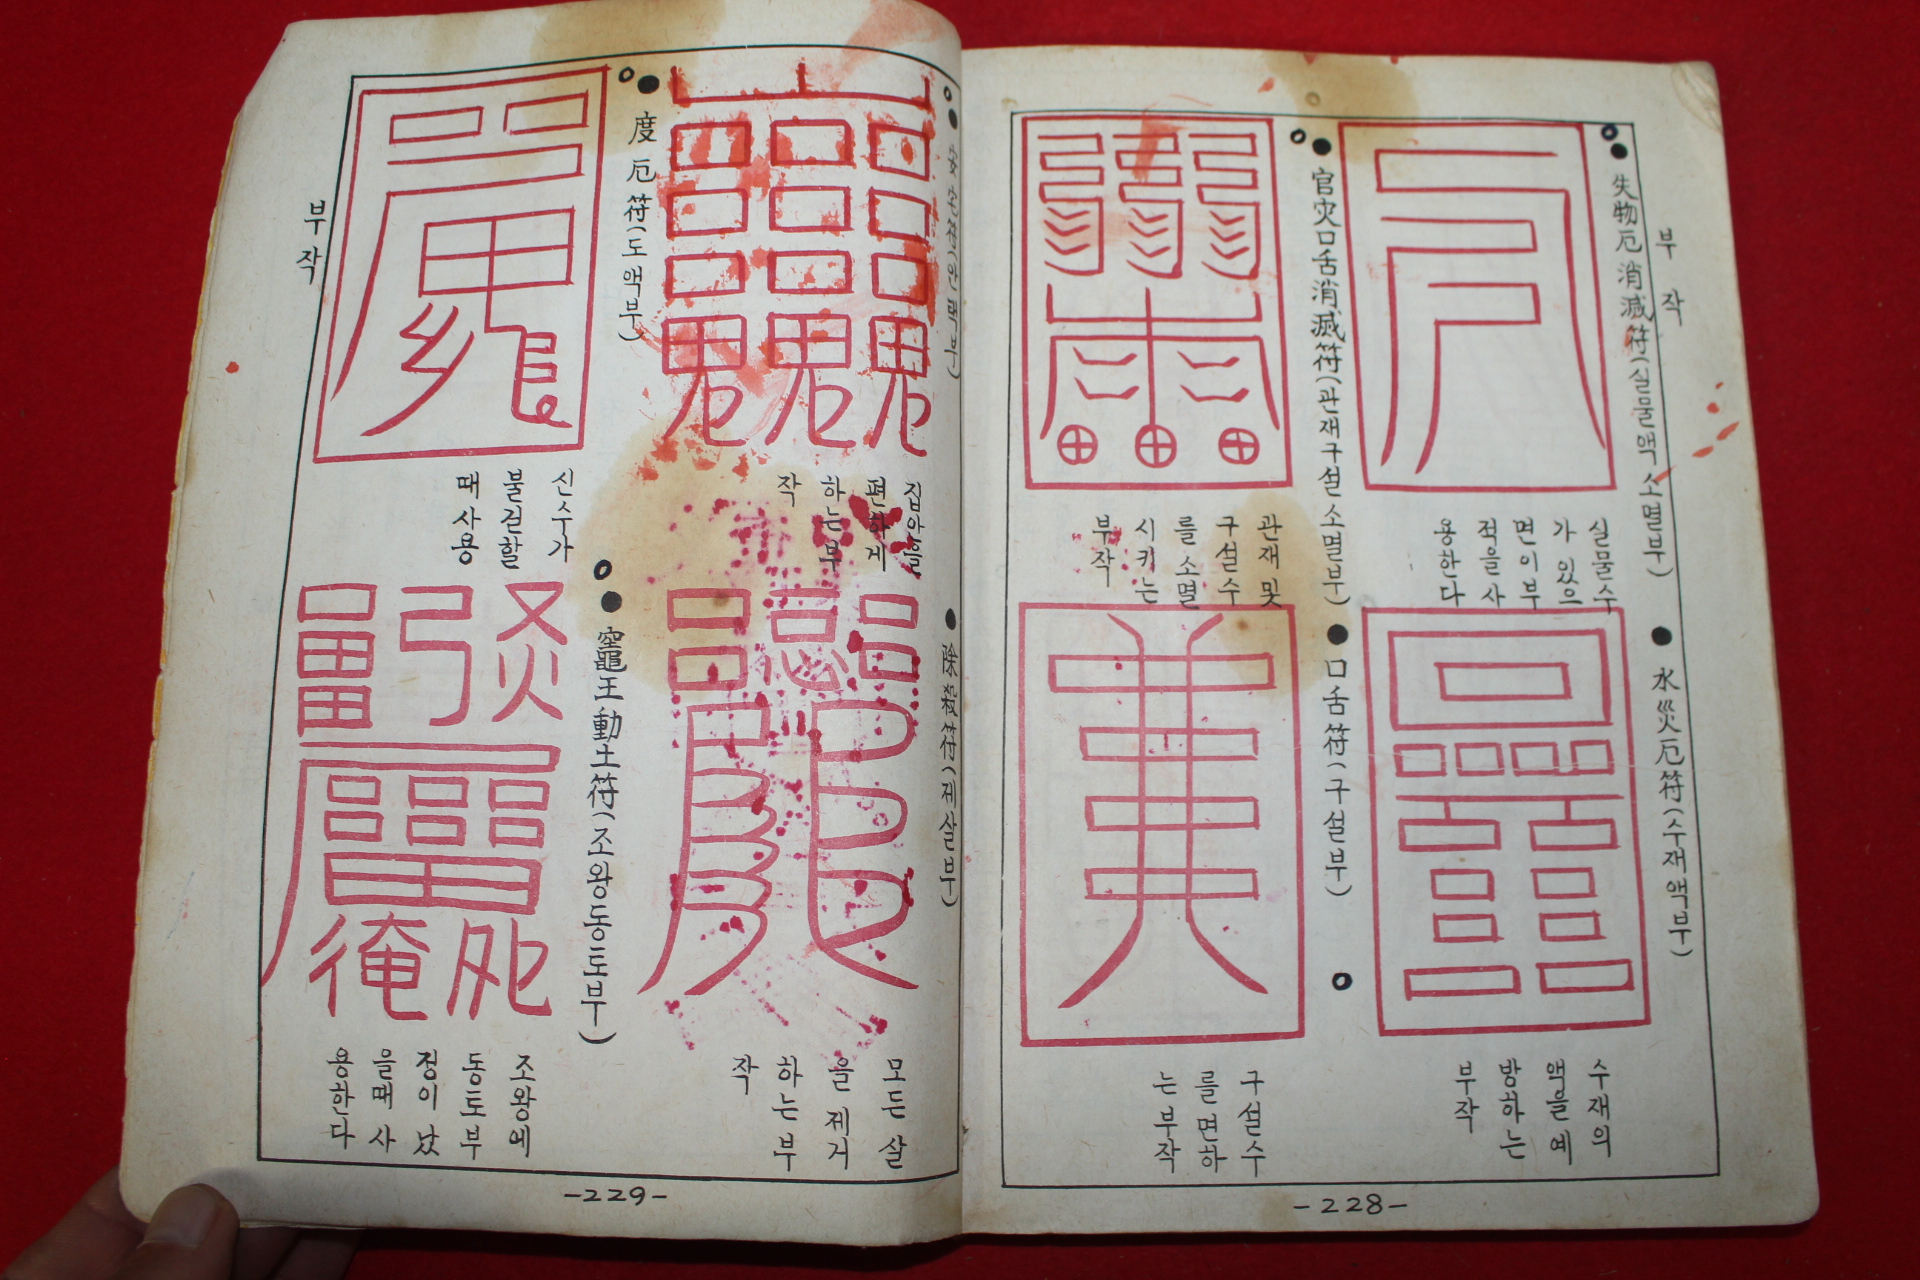 부작
失物厄消滅符(실물액소멸부)
실물수
가 있으
면이부
적을사
용한다
官灾口舌消滅符(관재구설소멸부)
관재및
구설수
를소멸
시키는
부작
水災厄符(수재액부)
수재의
액을예
방하는
부작
口舌符(구설부)
구설수
를면하
는부작
-228-
집안을
편하게
하는부
작
度厄符(도액부)
신수가
불길할
때사용
除殺符(제살부)
모든살
을제거
하는부
작
竈王動土符(조왕동토부)
조왕에
동토부
정이났
을때사
용한다
부작
-229-